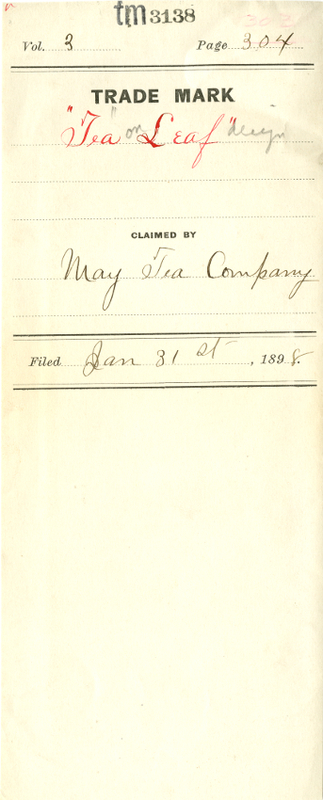 tm 3138
302
Vol. 3 Page 304
TRADE MARK
"Tea" on Leaf" design
CLAIMED BY
May Tea Company
Filed Jan 31st, 1898.